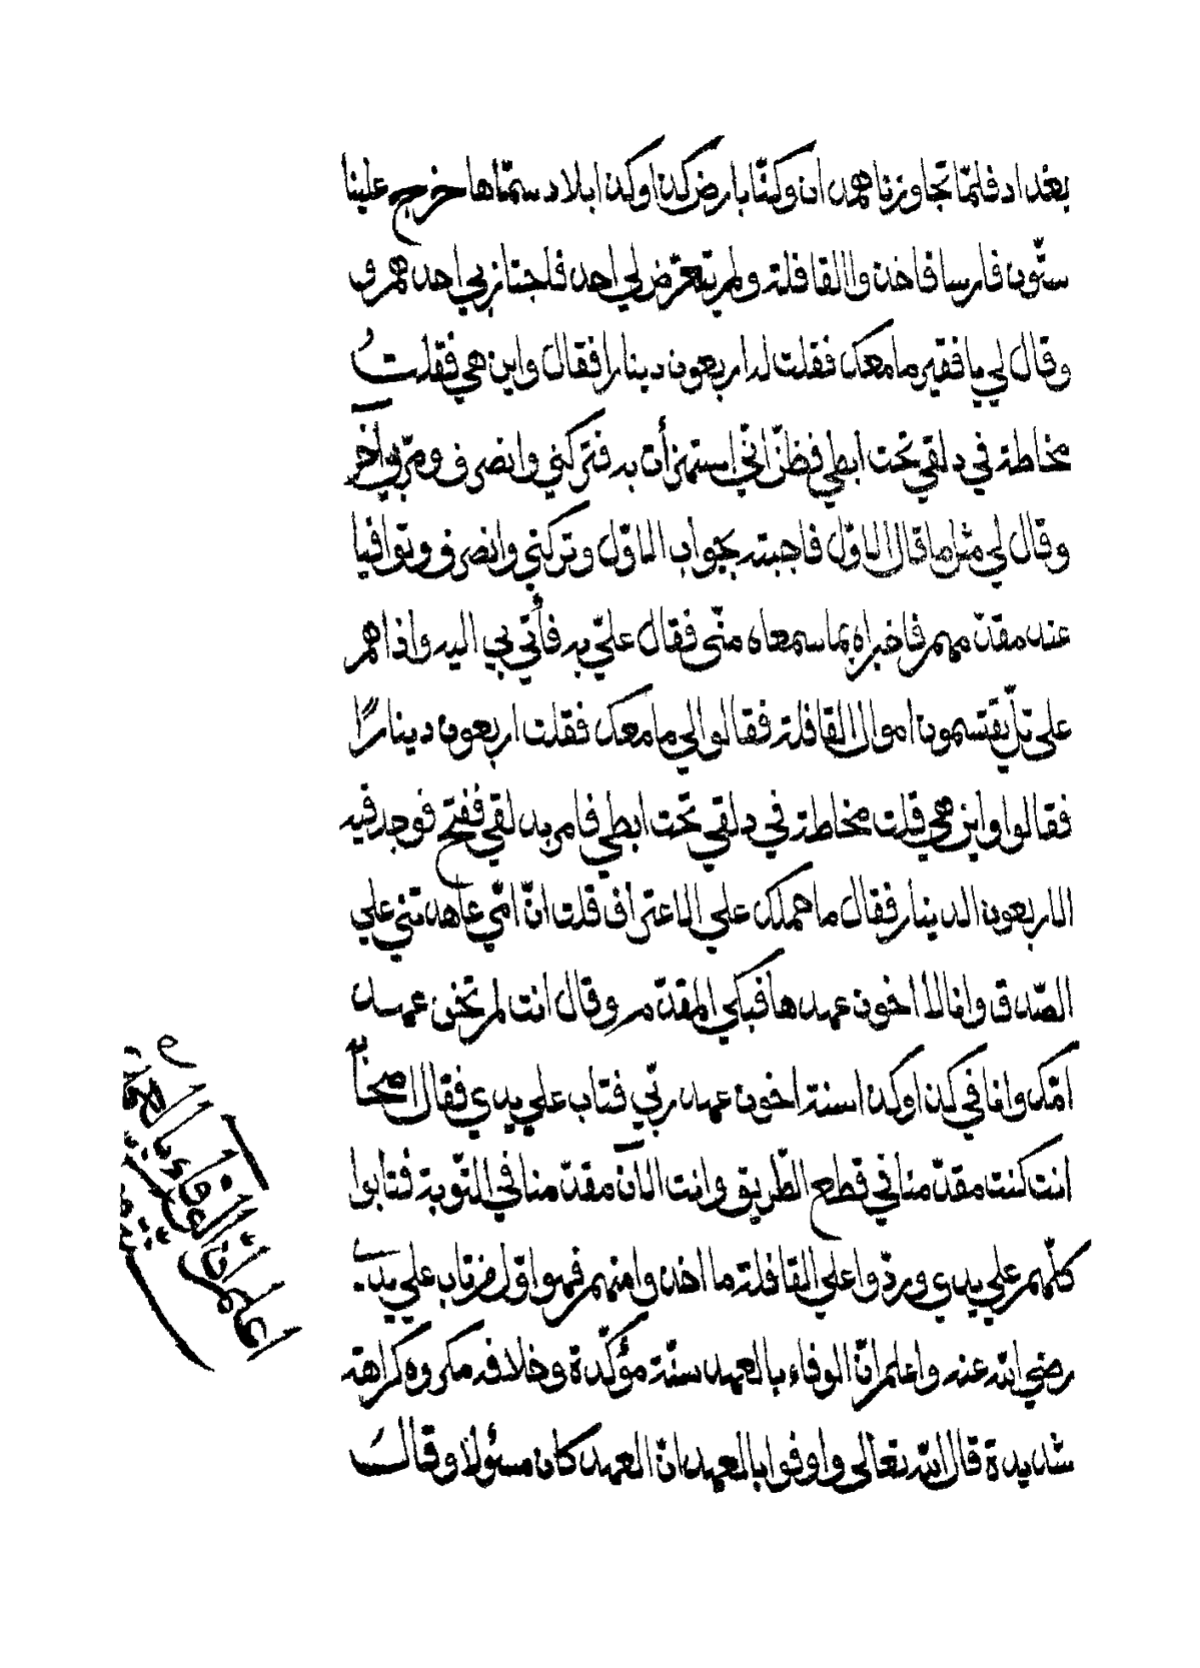 بغداد فلمّا تجاوزنا همدان وكنّا بارض كذا وكذا بلاد سمّاها خرج علينا
ستّون فارسا فاخذوا القافلة ولم يتعرّض لي احد فاجتاز بي احدهم و
وقال لي يا فقير ما معك فقلت له اربعون دينارا فقال واين هي فقلت
مخاطة في دلقي تحت ابطي فظنّ انّي استهزأن به فتركني وانصرف ومرّ بي آخر
وقال لي مثل ما قال الاوّل فاجبته بجواب الاوّل وتركني وانصرف وتوافيا
عند مقدّمهم فاخبراه بما سمعاه منّي فقال عليّ به فأتي بي اليه واذا هم
على تلّ يقتسمون اموال القافلة فقالوا لي ما معك فقلت اربعون دينارًا
فقالوا واين هي قلت مخاطة في دلقي تحت ابطي فامر بدلقي ففتح فوجد فيه
الاربعون الدينار فقال ما حملك علي الاعتراف قلت انّ امّي عاهدتني علي
الصّدق وانا لا اخون عهدها فبكي المقدّم وقال انت لم تخن عهد
امّك وانا في كذا وكذا سنة اخون عهد ربّي فتاب علي يدي فقال اصحابه
انت كنت مقدّمنا في قطع الطّريق وانت الآن مقدّمنا في التّوبة فتابوا
كلّهم علي يدي وردّوا علي القافلة ما اخذوا منهم فهو اوّل من تاب علي يدي
رضي الله عنه واعلم انّ الوفاء بالعهد سنّة مؤكّدة وخلافه مكروه كراهة
شديدة قال الله تعالى واوفوا بالعهد انّ العهد كان مسئولا وقال
اعلم انّ الوفاء بالعهد